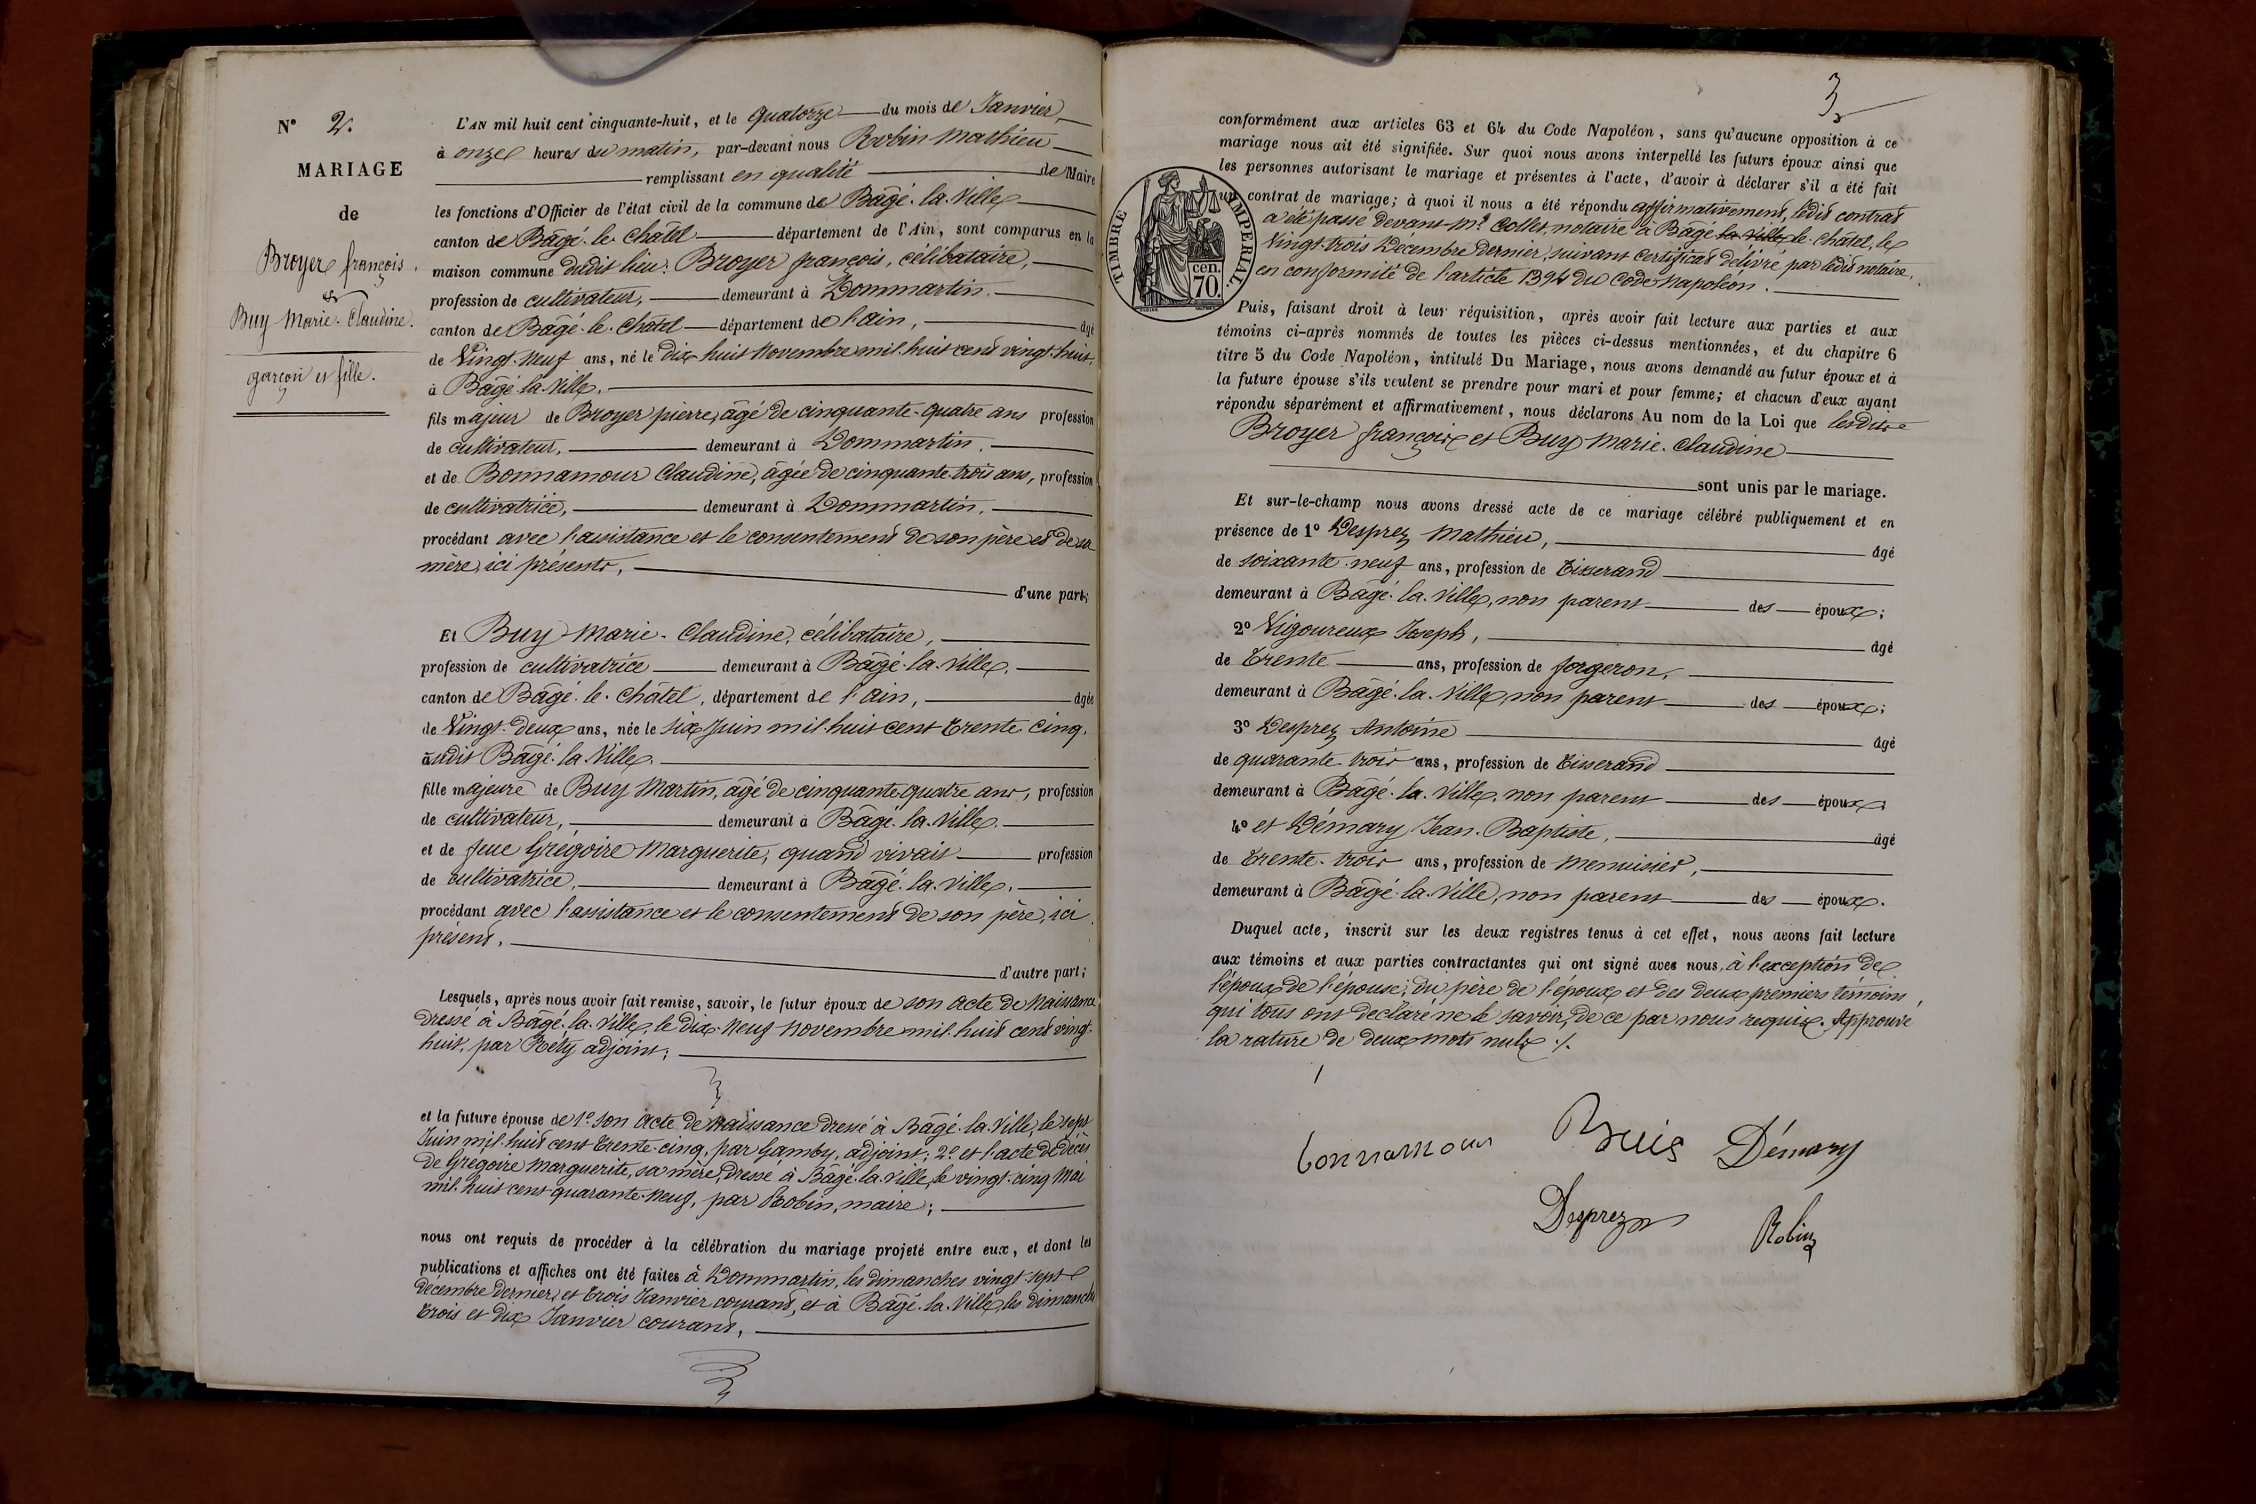 N° 2.
MARIAGE
de
Broyer françois.
&
Buy Marie-Claudine.
garçon et fille.
L'AN mil huit cent cinquante-huit, et le quatorze du mois de Janvier,
à onze heures du matin, par-devant nous Robin Mathieu
remplissant en qualité de Maire
les fonctions d'Officier de l'état civil de la commune de Bâgé-la-Ville,
canton de Bâgé-le-Châtel département de l'Ain, sont comparus en la
maison commune dudit lieu: Broyer françois, célibataire,
profession de cultivateur, demeurant à Dommartin.
canton de Bâgé-le-Châtel département de l'ain, âgé
de Vingt-neuf ans, né le dix-huit Novembre mil-huit cent vingt-huit,
à Bâgé-la-Ville,
fils majeur de Broyer pierre, âgé de cinquante-quatre ans profession
de cultivateur, demeurant à Dommartin.
et de Bonnamour Claudine, âgée de cinquante-trois ans, profession
de cultivatrice, demeurant à Dommartin,
procédant avec l'assistance et le consentement de son père et de sa
mère, ici présents,
d'une part;
Et Buy Marie-Claudine, célibataire,
profession de cultivatrice demeurant à Bâgé-la-Ville,
canton de Bâgé-le-Châtel, département de l'ain, âgée
de Vingt-deux ans, née le six Juin mil-huit cent trente-cinq,
audit Bâgé-la-Ville
fille majeure de Buy Martin, âgé de cinquante-quatre ans, profession
de cultivateur, demeurant à Bâgé-la-Ville.
et de feue Grégoire Marguerite, quand vivait profession
de cultivatrice, demeurant à Bâgé-la-Ville,
procédant avec l'assistance et le consentement de son père, ici
présent,
d'autre part;
Lesquels, après nous avoir fait remise, savoir, le futur époux de son acte de Naissance
dressé à Bâgé-la-Ville, le dix-neuf Novembre mil-huit cent vingt-
huit, par Réty adjoint;
et la future épouse de 1° son acte de naissance dressé à Bâgé-la-Ville, le sept
Juin mil-huit cent trente-cinq, par Gamby, adjoint; 2° et l'acte de décès
de Grégoire Marguerite, sa mère, dressé à Bâgé-la-Ville, le vingt-cinq Mai
mil-huit cent quarante-neuf, par Robin, maire;
nous ont requis de procéder à la célébration du mariage projeté entre eux, et dont les
publications et affiches ont été faites à Dommartin, les dimanches vingt-sept
décembre dernier, et trois Janvier courant, et à Bâgé-la-Ville, les dimanches
trois et dix Janvier courant,
3
conformément aux articles 63 et 64 du Code Napoléon, sans qu'aucune opposition à ce
mariage nous ait été signifiée. Sur quoi nous avons interpellé les futurs époux ainsi que
les personnes autorisant le mariage et présentes à l'acte, d'avoir à déclarer s'il a été fait
un contrat de mariage; à quoi il nous a été répondu affirmativement, ledit contrat
a été passé devant Me Collet, notaire à Bâgé la Ville le-Châtel, le
Vingt-trois Décembre dernier, suivant certificat délivré par ledit notaire,
en conformité de l'article 1394 du Code Napoléon.
TIMBRE IMPERIAL.
cen.
70.
Puis, faisant droit à leur réquisition, après avoir fait lecture aux parties et aux
témoins ci-après nommés de toutes les pièces ci-dessus mentionnées, et du chapitre 6
titre 5 du Code Napoléon, intitulé Du Mariage, nous avons demandé au futur époux et à
la future épouse s'ils veulent se prendre pour mari et pour femme; et chacun d'eux ayant
répondu séparément et affirmativement, nous déclarons Au nom de la Loi que lesdits
Broyer françois et Buy Marie-Claudine
sont unis par le mariage.
Et sur-le-champ nous avons dressé acte de ce mariage célébré publiquement et en
présence de 1° Desprez Mathieu, âgé
de soixante-neuf ans, profession de Tisserand
demeurant à Bâgé-la-Ville, non parent des époux;
2° Vigoureux Joseph, âgé
de trente ans, profession de forgeron,
demeurant à Bâgé-la-Ville, non parent des époux;
3° Desprez Antoine âgé
de quarante-trois ans, profession de Tisserand
demeurant à Bâgé-la-Ville, non parent des époux;
4° et Démary Jean-Baptiste, âgé
de trente-trois ans, profession de Menuisier,
demeurant à Bâgé-la-Ville, non parent des époux.
Duquel acte, inscrit sur les deux registres tenus à cet effet, nous avons fait lecture
aux témoins et aux parties contractantes qui ont signé avec nous, à l'exception de
l'époux de l'épouse, du père de l'époux et des deux premiers témoins,
qui tous ont déclaré ne le savoir, de ce par nous requis. Approuvé
la rature de deux mots nuls ./.
bonnamour Buis Démary
Desprez Robin